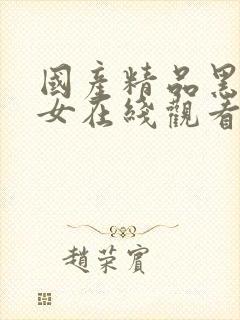 國産精品黑
女在綫觀看
趙荣賓